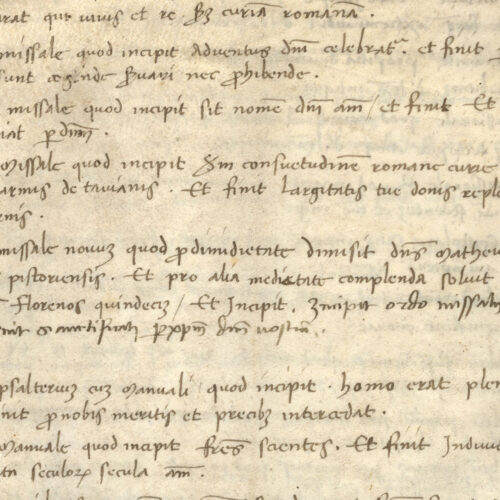 arat qui vivis et re . Scd3 curiam romanam .
missale quod incipit adventus dni celebratr . et finit
sunt cogende servari nec prohibende .
missale quod incipit sit nomen dni am / et finit Et
p dnm .
Missale quod incipit Scdm consuetudine romane curie
de tavianis . Et finit largitatis tue donis reple
missale novuz quod pro dimidietate dimisit dns Matheu
pistoriensis . Et pro alia medietate complenda soluit
Florenos quindeciz / Et Incipit . Incipit ordo missalis
sanctificati p xpm dnm nostrum .
psalterium cuz Manuali / quod incipit . homo erat plen
pro nobis meritis et precibz intercedat .
Manuale quod incipit fres scientes . Et finit Induvi
seculorz secula am .